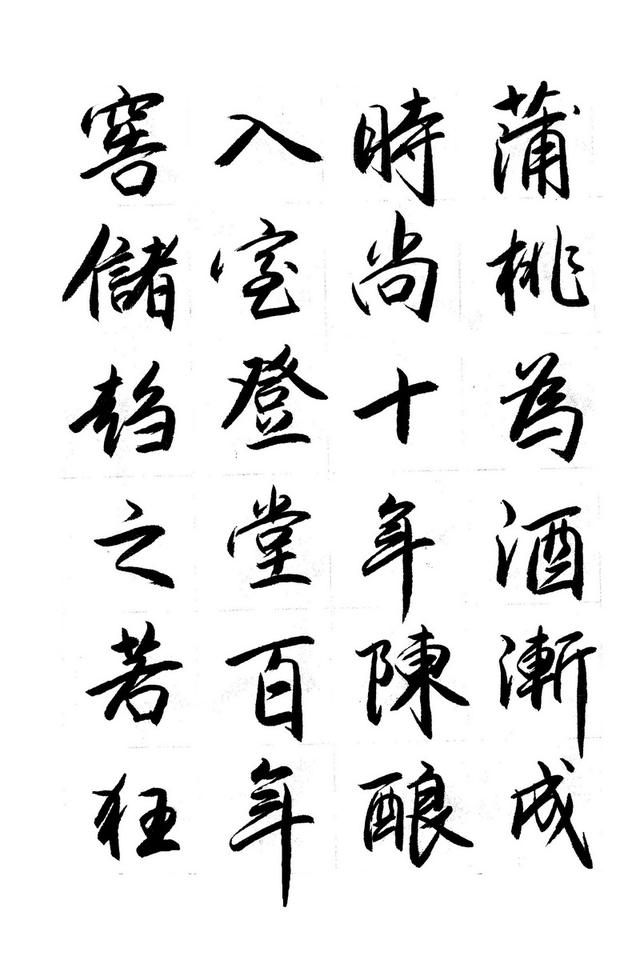 蒲桃為酒漸成
時尚十年陳酿
入室登堂百年
窖儲趋之若狂